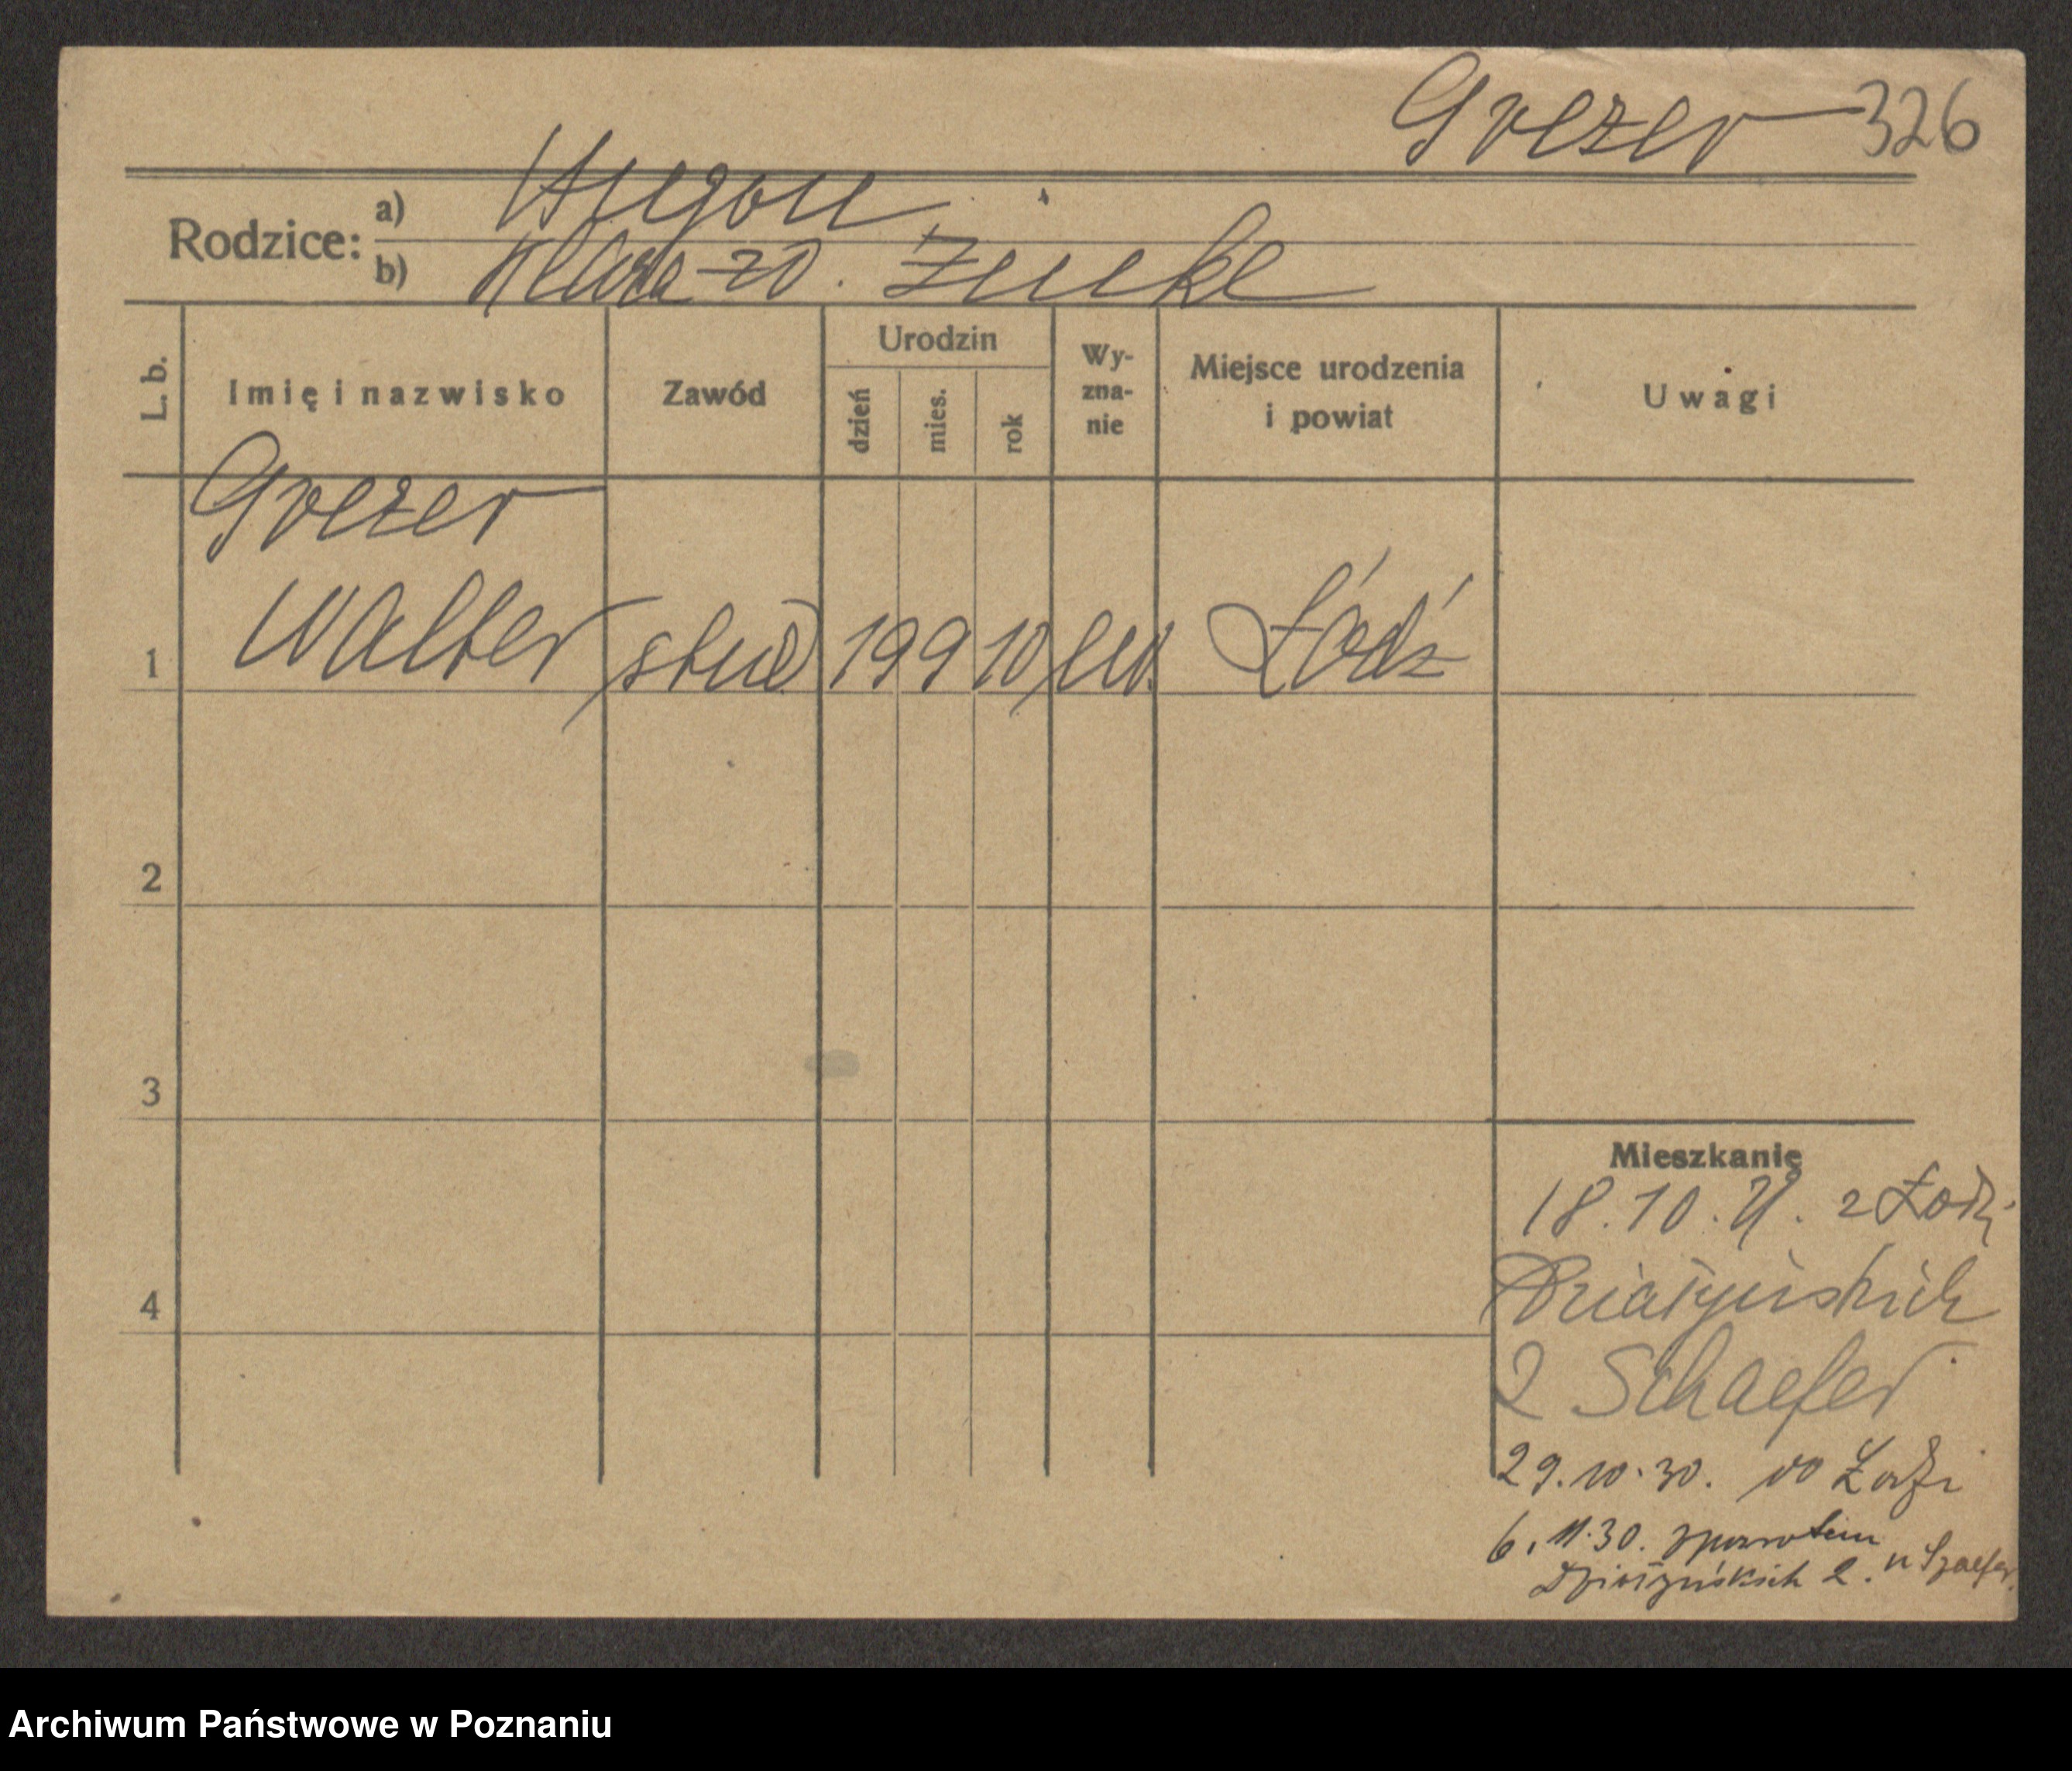 Grezer 326
Rodzice:
a) Hugon
b) Klara zd. Zinke
L. b.
Imię i nazwisko
Zawód
Urodzin
dzień
mies.
rok
Wy-
zna-
nie
Miejsce urodzenia
i powiat
Uwagi
Grezer
1 Walter stud 19 9 10 ew. Łódź
2
3
4
Mieszkanie
18.10. z Łodzi
Działyńskich
2 Schaefer
29.10.30. do Łodzi
6.11.30. zpowrotem
Działyńskich 2. u Szaefer.
Archiwum Państwowe w Poznaniu